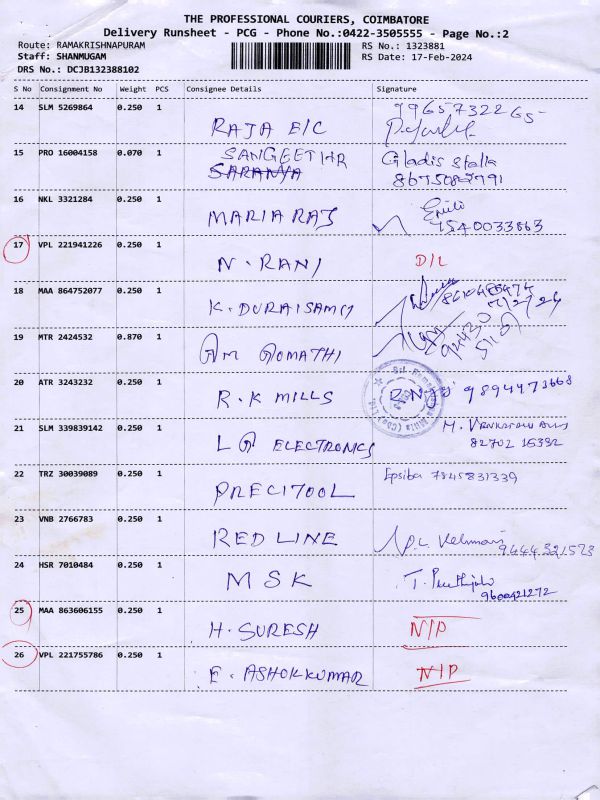 THE PROFESSIONAL COURIERS, COIMBATORE
Delivery Runsheet - PCG - Phone No.:0422-3505555 - Page No.:2
Route: RAMAKRISHNAPURAM RS No.: 1323881
Staff: SHANMUGAM RS Date: 17-Feb-2024
DRS No.: DCJB132388102
S No Consignment No Weight PCS Consignee Details Signature
14 SLM 5269864 0.250 1 RAJA E/C 9965732265
15 PRO 16004158 0.070 1 SANGEETHR
SARANYA Gladis Stella
16 NKL 3321284 0.250 1 MARIA RAJ 7540033863
17 VPL 221941226 0.250 1 N. RANI D/L
18 MAA 864752077 0.250 1 K. DURAISAMY
19 MTR 2424532 0.870 1 GOMATHI
20 ATR 3243232 0.250 1 R.K MILLS 9894473668
21 SLM 339839142 0.250 1 L G ELECTRONICS M.
82702 15332
22 TRZ 30039089 0.250 1 PRECITOOL Epsiba 7845831339
23 VNB 2766783 0.250 1 RED LINE 9444321573
24 HSR 7010484 0.250 1 MSK T.
9600421272
25 MAA 863606155 0.250 1 H. SURESH N/P
26 VPL 221755786 0.250 1 E. ASHOKKUMAR N/P